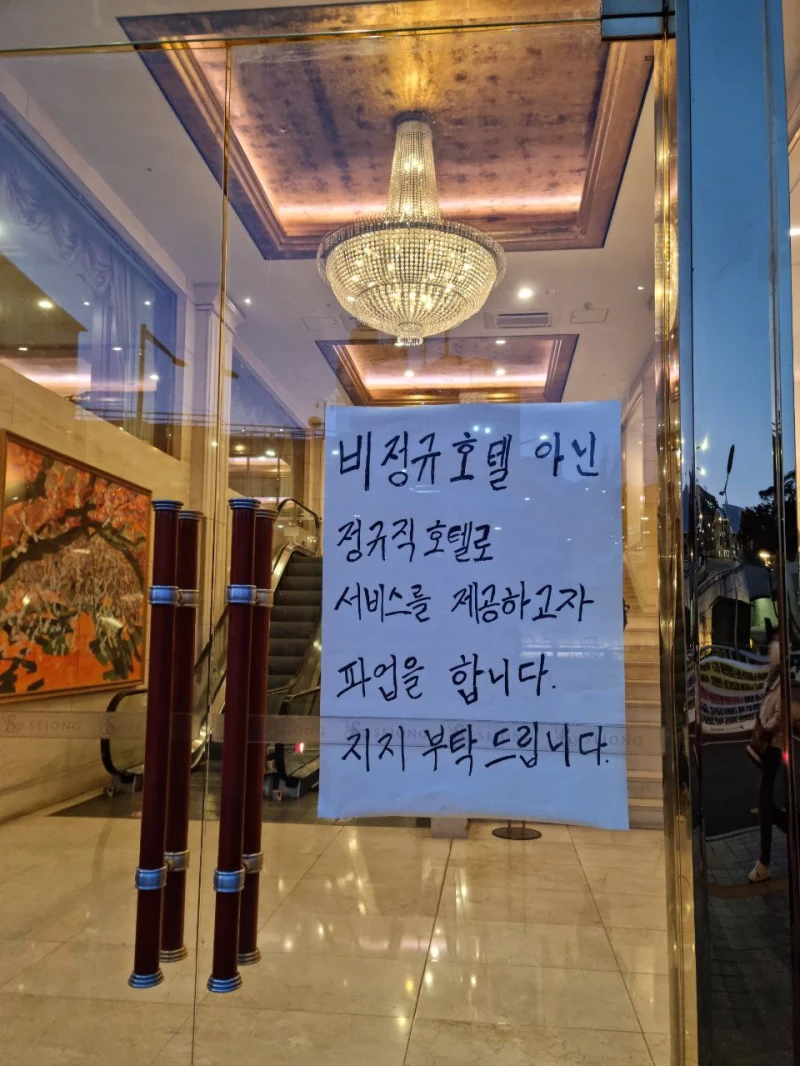 비정규호텔 아닌
정규직호텔로
서비스를 제공하고자
파업을 합니다.
지지 부탁드립니다.
SEJONG SEJONG SEJONG SEJONG